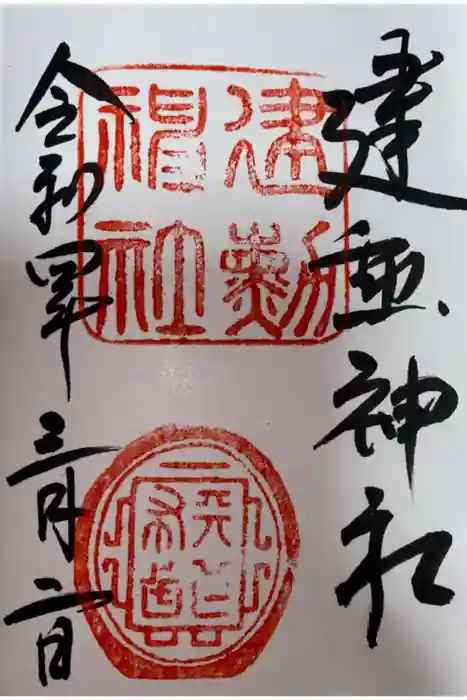 建勲神社
建勲
神社
令和四年三月二日